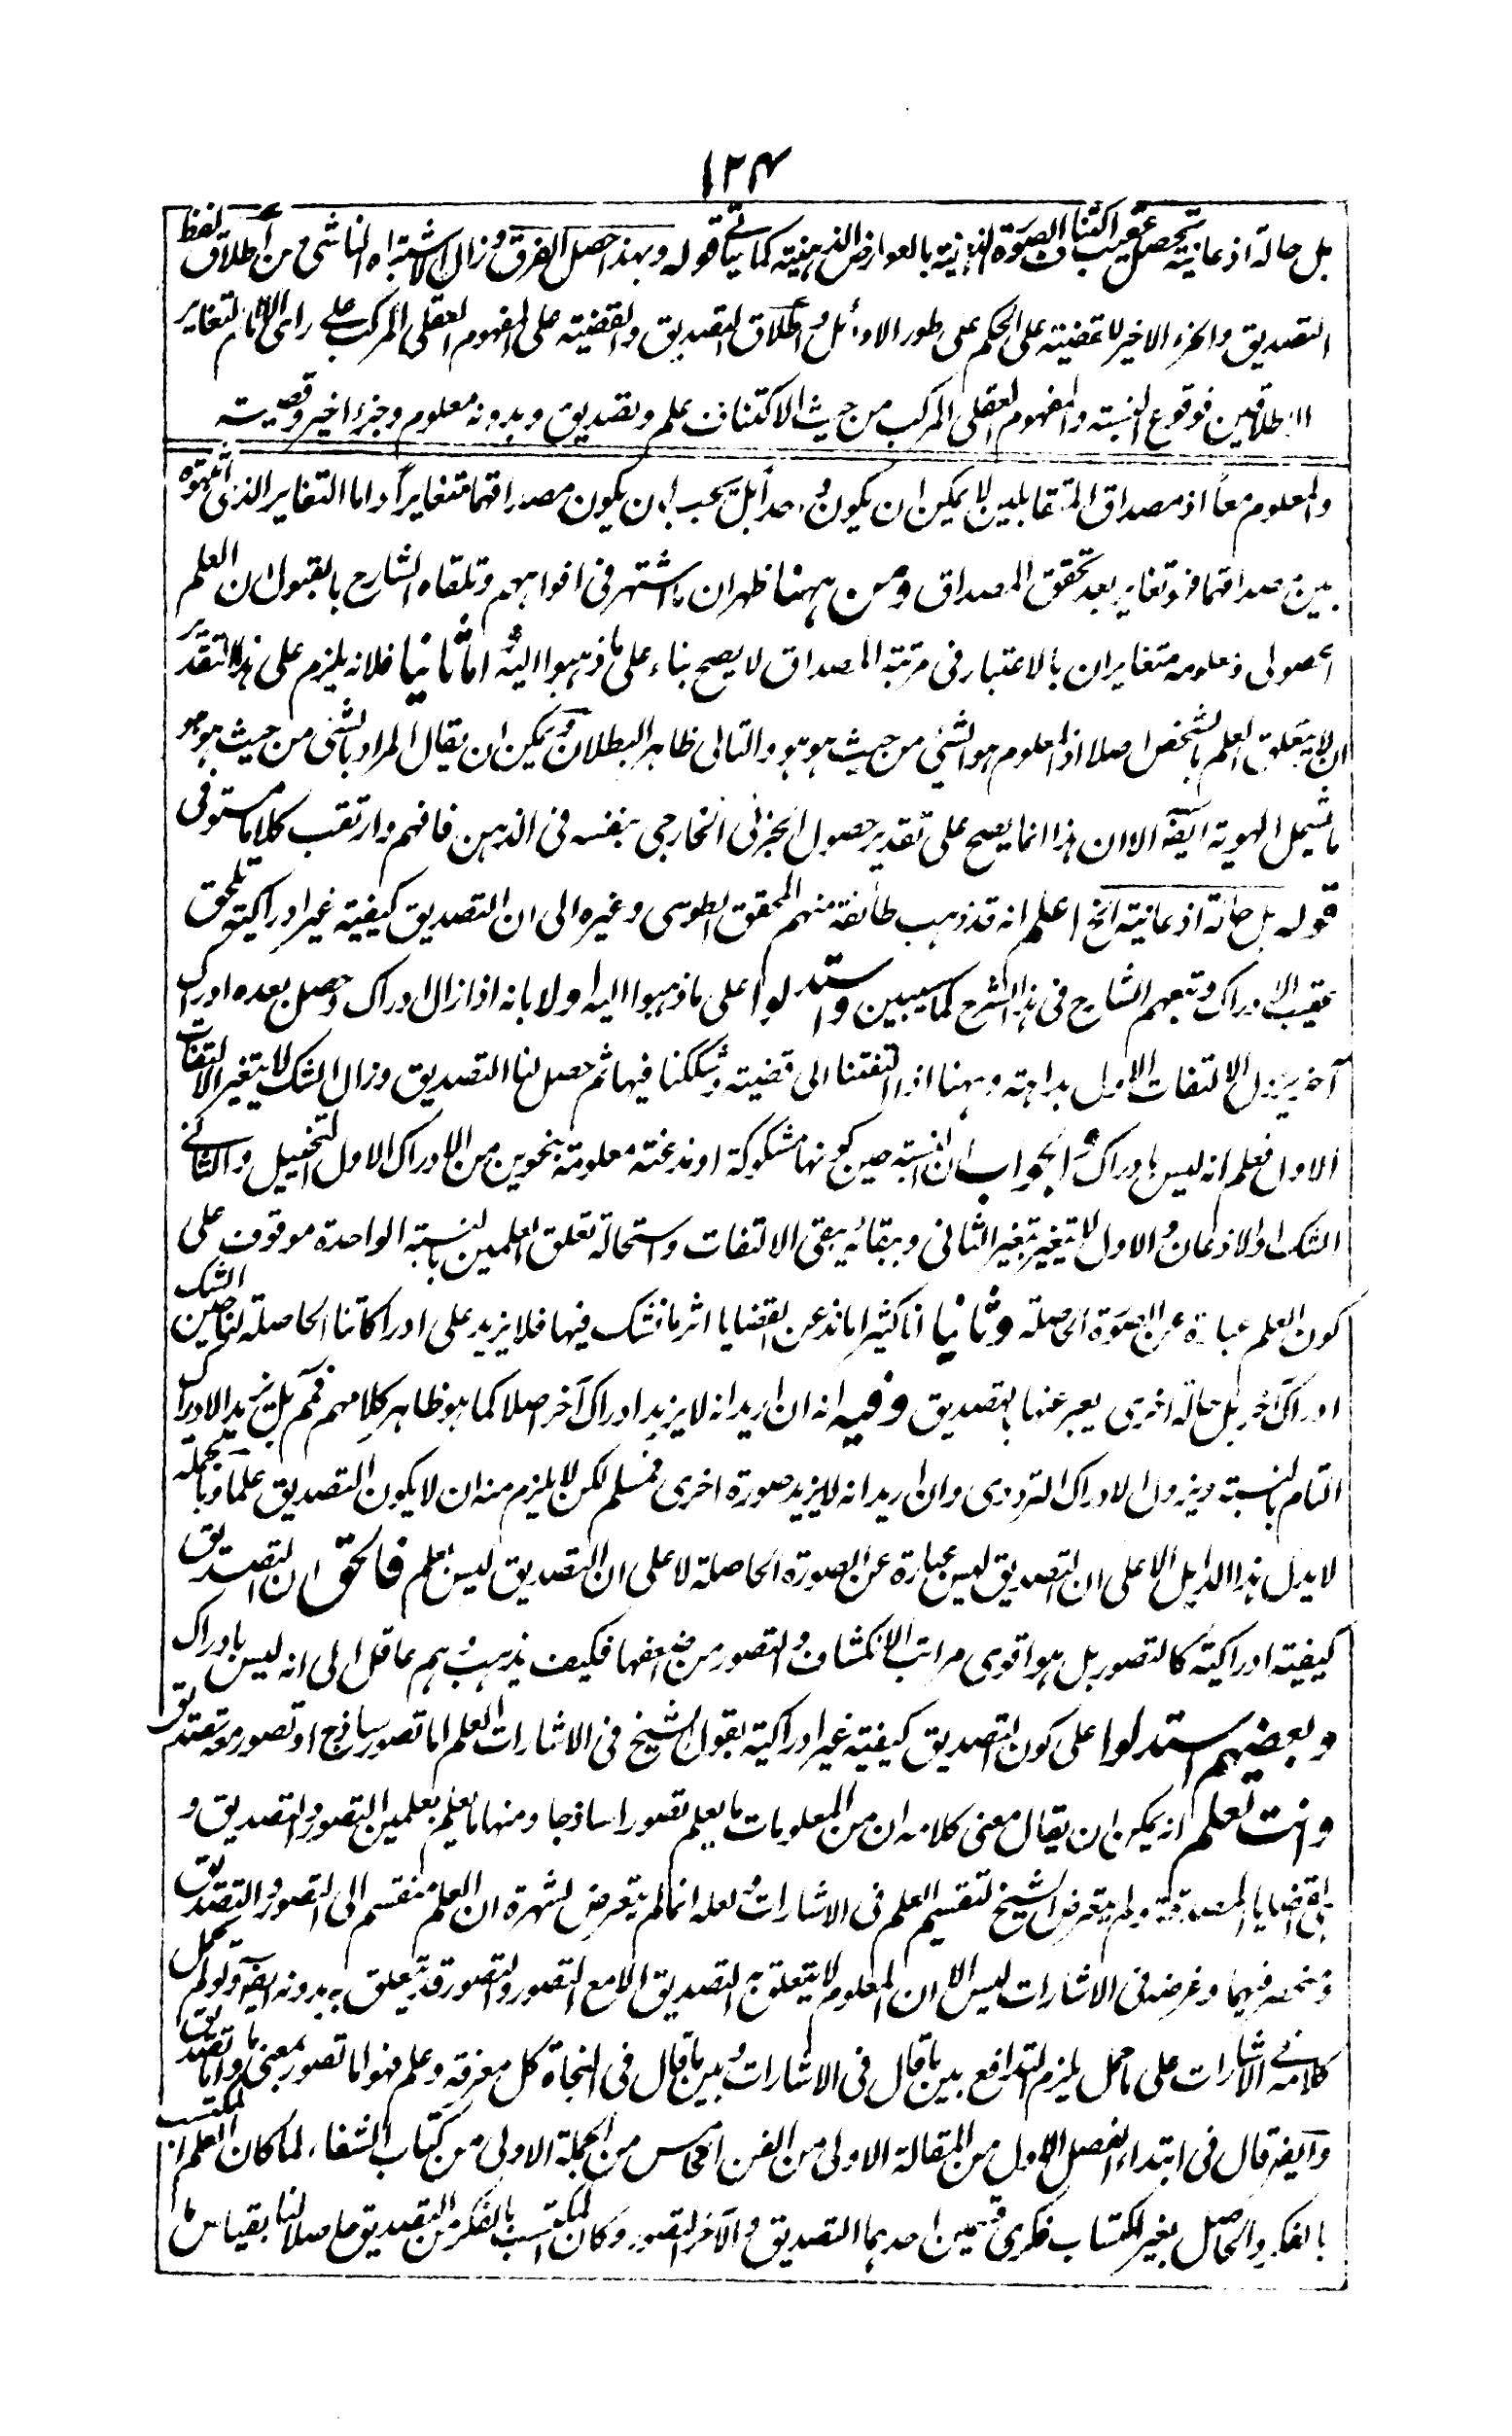 ١٢٤
بل حالة اذعانية تحصل عقيب اكتناف الصورة الذهنية بالعوارض الذهنية كما يأتي قوله وبهذا حصل الفرق وزال الاشتباه الناشي من اطلاق لفظ
التصديق والجزء الاخير للقضية على الحكم على طور الاوائل واطلاق التصديق والقضية على المفهوم العقلي المركب على راى الامام لتغاير
الاطلاقين فوقوع النسبة والمفهوم العقلي المركب من حيث الاكتناف علم وتصديق وبدونه معلوم وجزء اخير وقضية
والمعلوم معا اذ مصداق المتقابلين لا يمكن ان يكون واحدا بل يجب ان يكون مصداقهما متغايرا واما التغاير الذى اثبتوه
بين مصداقهما فهو تغاير بعد تحقق المصداق ومن ههنا ظهر ان ما اشتهر فى افواههم وتلقاه الشارح بالقبول ان العلم
الحصولى ومعلومه متغايران بالاعتبار فى مرتبة المصداق لا يصح بناء على ما ذهبوا اليه واما ثانيا فلانه يلزم على هذا التقدير
ان لا يتعلق العلم بالشخص اصلا اذ المعلوم هو الشئ من حيث هو هو والتالى ظاهر البطلان ويمكن ان يقال المراد بالشئ من حيث هو هو
ما يشمل الهوية ايضا الا ان هذا انما يصح على تقدير حصول الجزئى الخارجى بنفسه فى الذهن فافهم وارتقب كلاما مستوفى
قوله بل حالة اذعانية الخ اعلم انه قد ذهب طائفة منهم المحقق الطوسى وغيره الى ان التصديق كيفية غير ادراكية تلحق
عقيب الادراك وتبعهم الشارح فى هذا الشرح كما سيبين واستدلوا على ما ذهبوا اليه اولا بانه اذا زال ادراك وحصل بعده ادراك
آخر يزول الالتفات الاول بداهة وههنا اذا التفتنا الى قضية وشككنا فيها ثم حصل لنا التصديق وزال الشك لا يتغير الالتفات
الاول فعلم انه ليس بادراك والجواب ان النسبة حين كونها مشكوكة او مذعنة معلومة بنحوين من الادراك الاول التخييل والثانى
الشك او الاذعان والاول لا يتغير بتغير الثانى وببقائه يبقى الالتفات واستحالة تعلق العلمين بالنسبة الواحدة موقوف على
كون العلم عبارة عن الصورة الحاصلة وثانيا انا كثيرا ما نذعن القضايا اثر ما نشك فيها فلا يزيد على ادراكاتنا الحاصلة لنا حين الشك
ادراك آخر بل حالة اخرى يعبر عنها بالتصديق وفيه انه ان اريد انه لا يزيد ادراك آخر اصلا كما هو ظاهر كلامهم فمم بل يزيد الادراك
التام بالنسبة ويزول الادراك الترددى وان اريد انه لا يزيد صورة اخرى فمسلم لكن لا يلزم منه ان لا يكون التصديق علما وبالجملة
لا يدل هذا الدليل الا على ان التصديق ليس عبارة عن الصورة الحاصلة لا على ان التصديق ليس بعلم فالحق ان التصديق
كيفية ادراكية كالتصور بل هو اقوى مراتب الانكشاف والتصور من اضعفها فكيف يذهب وهم عاقل الى انه ليس بادراك
وبعضهم استدلوا على كون التصديق كيفية غير ادراكية بقول الشيخ فى الاشارات العلم اما تصور ساذج او تصور معه تصديق
وانت تعلم انه يمكن ان يقال معنى كلامه ان من المعلومات ما يعلم تصورا ساذجا ومنها ما يعلم بعلمين التصور والتصديق و
القضايا المصدقة ولم يتعرض الشيخ لتقسيم العلم فى الاشارات ولعله انما لم يتعرض لشهرة ان العلم منقسم الى التصور والتصديق
ومنحصر فيهما وغرضه فى الاشارات ليس الا ان المعلوم لا يتعلق به التصديق الا مع التصور والتصور قد يتعلق به بدونه ايضا ولو لم يحمل
كلامه فى الاشارات على ما حمل يلزم التدافع بين ما قال فى الاشارات وبين ما قال فى النجاة كل معرفة وعلم فهو اما تصور بمعنى ما واما تصديق
وايضا قال فى ابتداء الفصل الاول من المقالة الاولى من الفن الخامس من الجملة الاولى من كتاب الشفاء لما كان العلم المكتسب
بالفكر والحاصل بغير اكتساب فكرى قسمين احدهما التصديق والآخر التصور وكان المكتسب بالفكر من التصديق حاصلا لنا بقياس ما